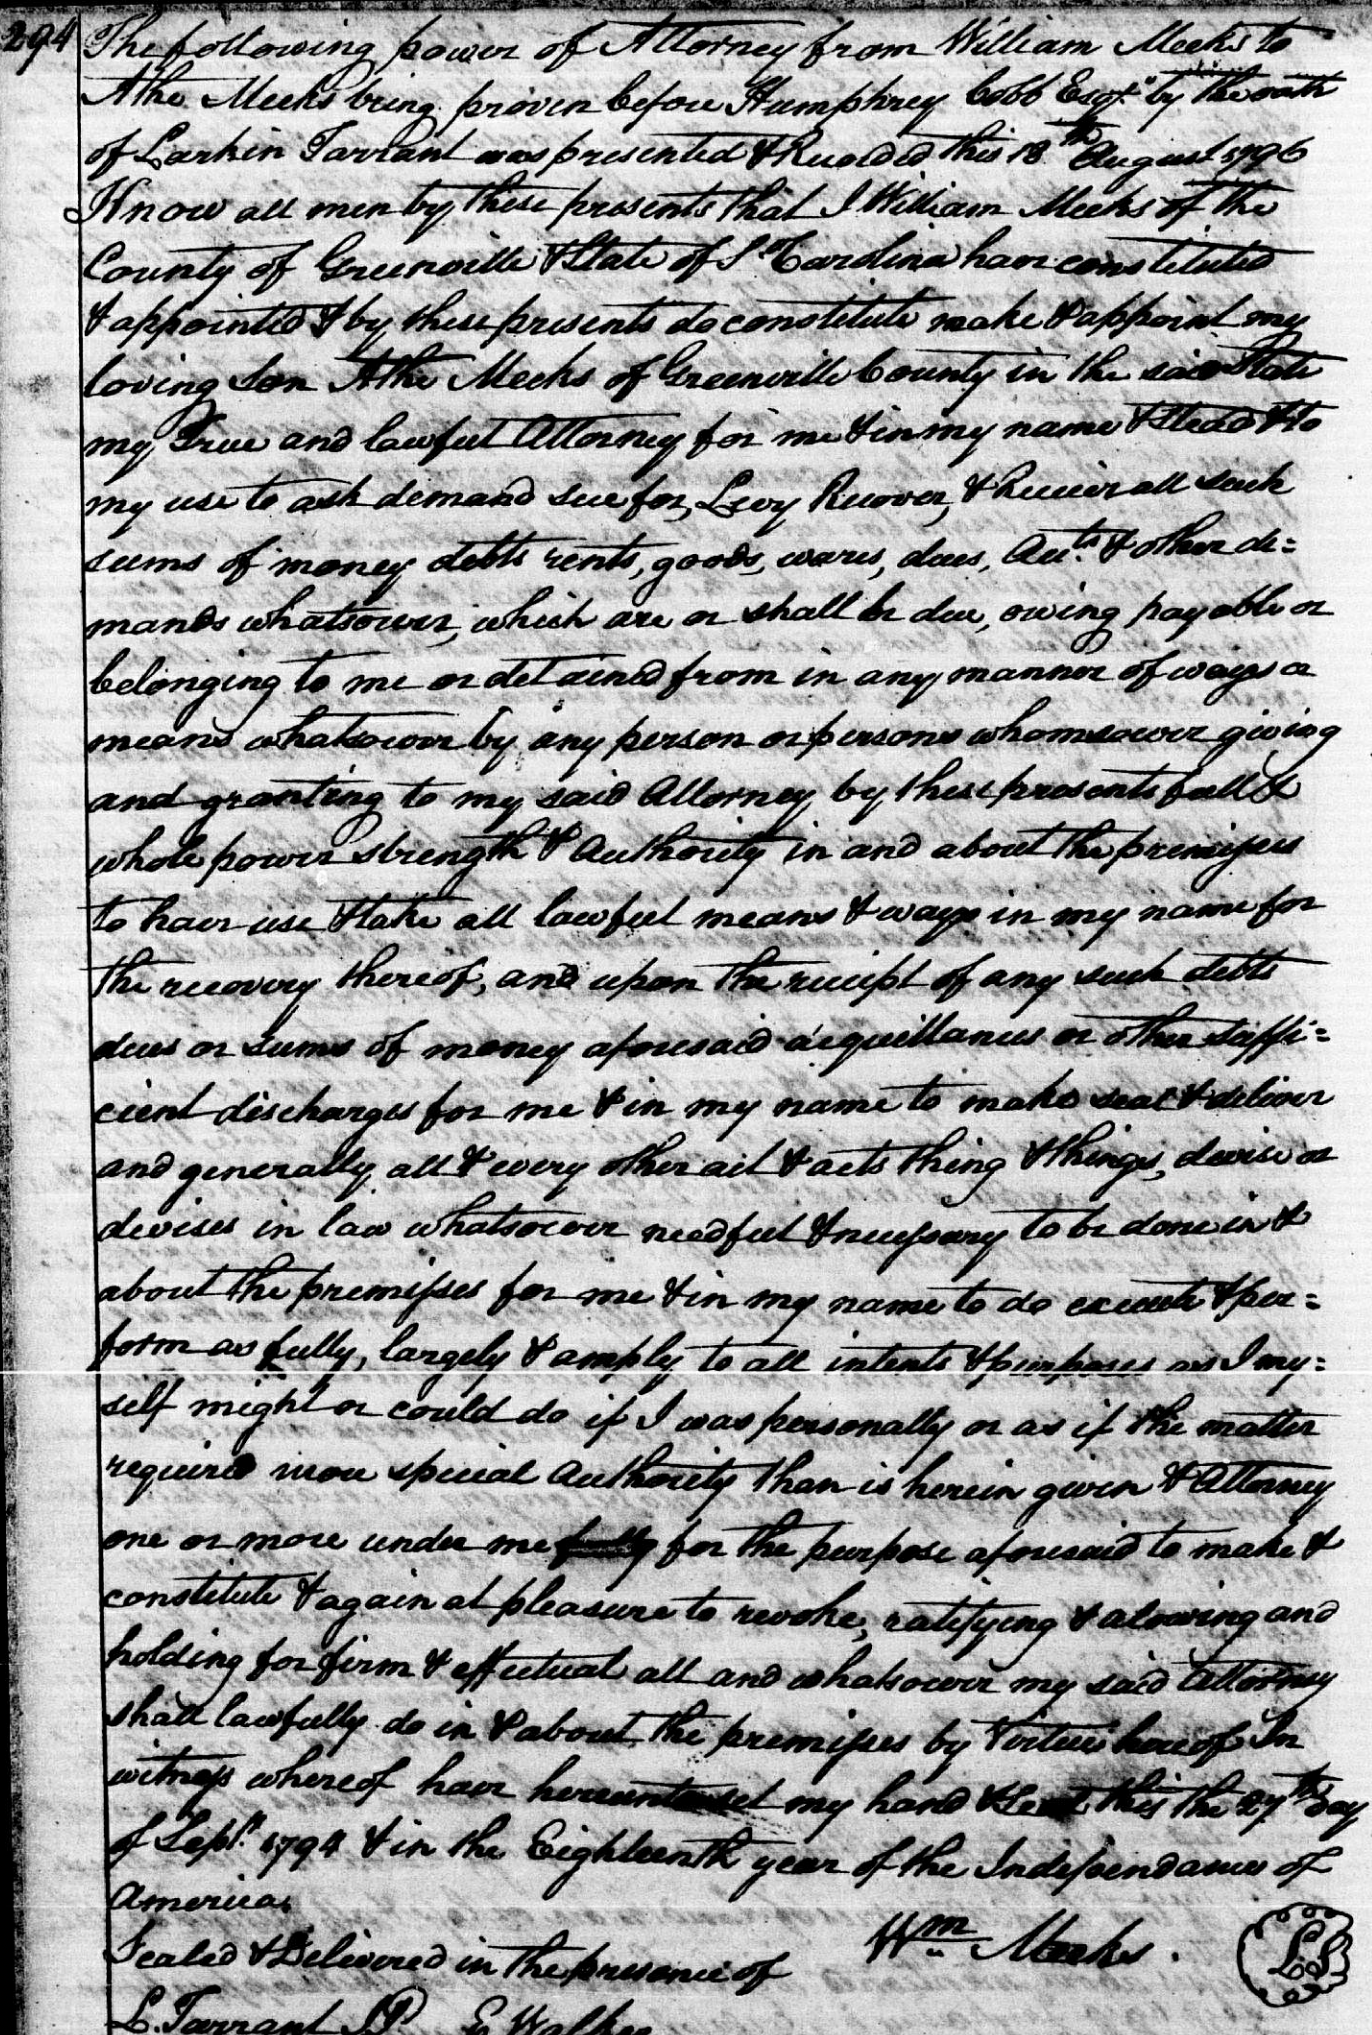 294
The following power of Attorney from William Meeks to
Athe Meeks being proven before Humphrey Cobb Esqr by the oath
of Larkin Tarrant was presented & Recorded this 18th August 1796
Know all men by these presents that I William Meeks of the
County of Greenville & State of So Carolina have constituted
& appointed & by these presents do constitute make & appoint my
loving Son Athe Meeks of Greenville County in the said State
my True and lawful Attorney for me & in my name & Stead & to
my use to ask demand sue for, Levy Recover, & Receive all such
sums of money debts rents, goods, wares, dues, Acts & other de=
mands whatsoever, which are or shall be due, owing payable or
belonging to me or detained from in any manner of ways or
means whatsoever by any person or persons whomsoever giving
and granting to my said Attorney by these presents full &
whole power strength & Authority in and about the premises
to have use & take all lawful means & ways in my name for
the recovery thereof, and upon the receipt of any such debts
dues or sums of money aforesaid acquittances or other suffi=
cient discharges for me & in my name to make seal & deliver
and generally all & every other act & acts thing & things, devise or
devises in law whatsoever needful & necessary to be done in &
about the premisses for me & in my name to do execute & per=
form as fully, largely & amply to all intents & purposes as I my=
self might or could do if I was personally or as if the matter
required more special Authority than is herein given & Attorney
one or more under me for the purpose aforesaid to make &
constitute & again at pleasure to revoke, ratifying & alowing and
holding for firm & effectual all and whatsoever my said Attorney
shall lawfully do in & about the premises by Virtue hereof In
witness whereof have hereunto set my hand & Seal this the 27th day
of Sept. 1794 & in the Eighteenth year of the Independance of
America.
Wm Meeks. LS
Sealed & Delivered in the presence of
L. Tarrant J.P. E Walker